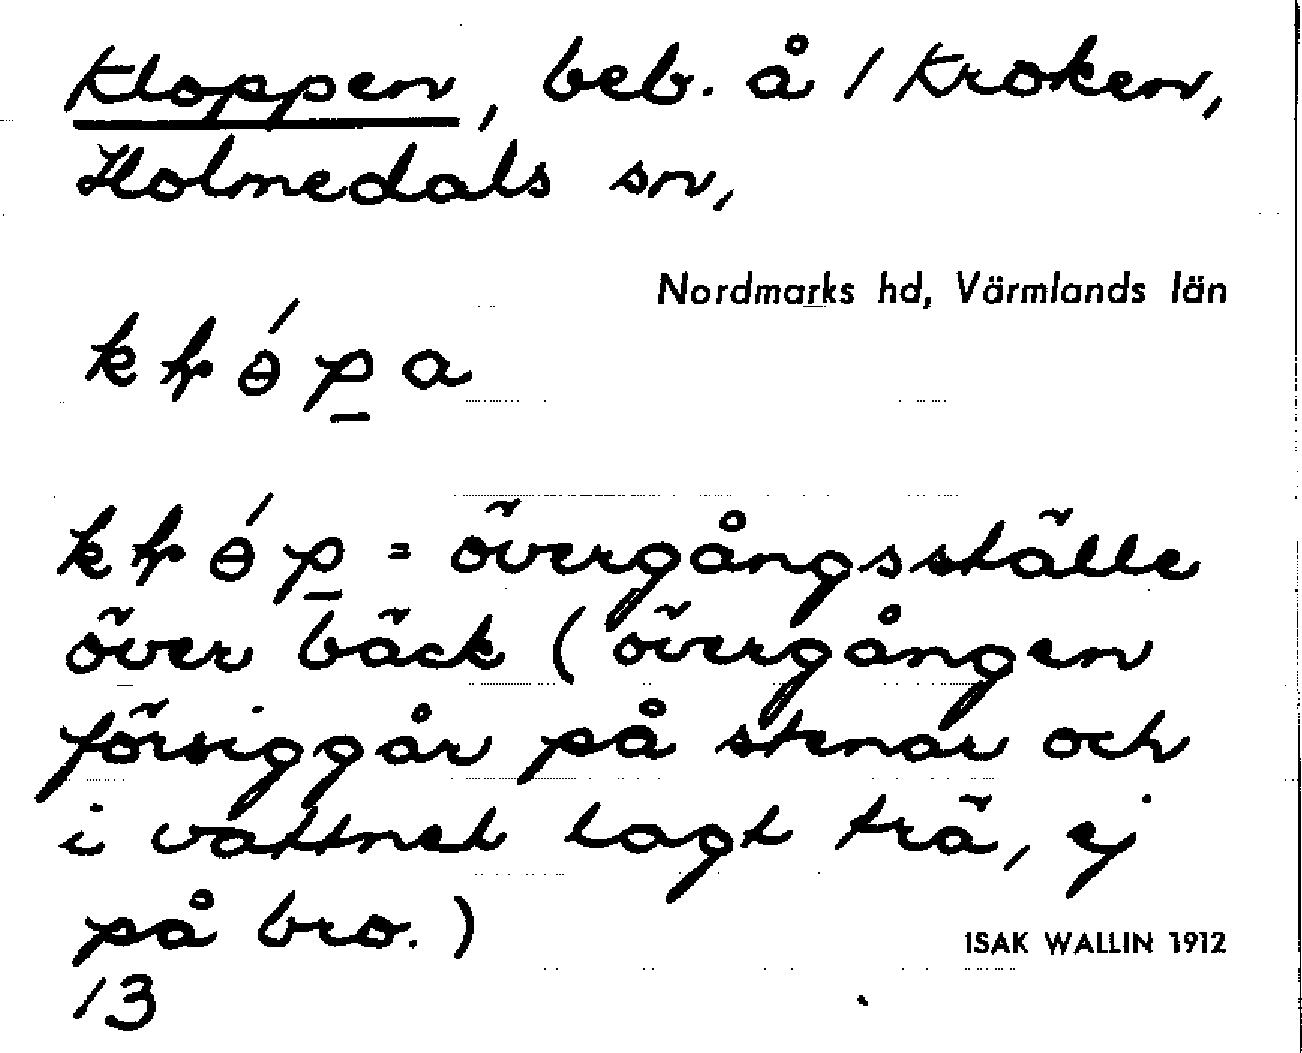 Kloppen, beb. å 1 Kroken,
Holmedals sn,
Nordmarks hd, Värmlands län
övergångsställe
över bäck (övergången
försiggår på stenar och
i vattnet lagt trä, ej
på bro.)
ISAK WALLIN 1912
13